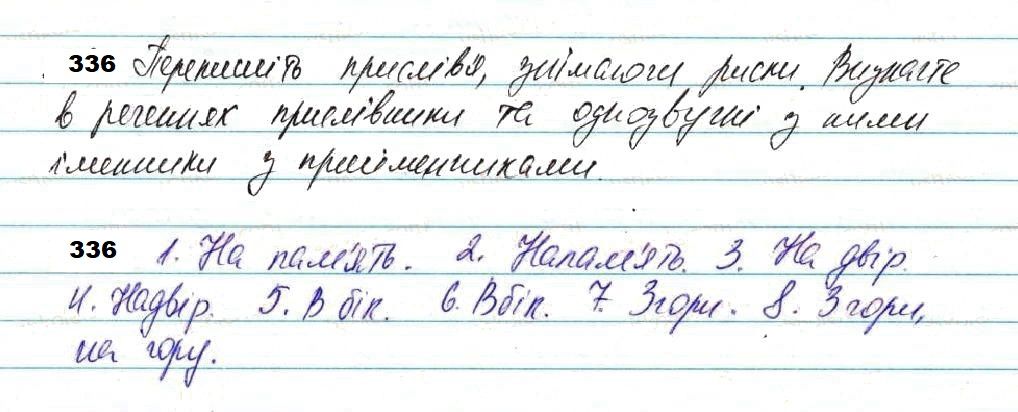 336 Перепишіть прислів'я, знімаючи риски. Визначте
в реченнях прислівники та однозвучні з ними
іменники з прийменниками.
336 1. На пам'ять. 2. Напам'ять. 3. На двір.
4. Надвір. 5. В бік. 6. Вбік. 7. Згори. 8. З гори,
на гору.